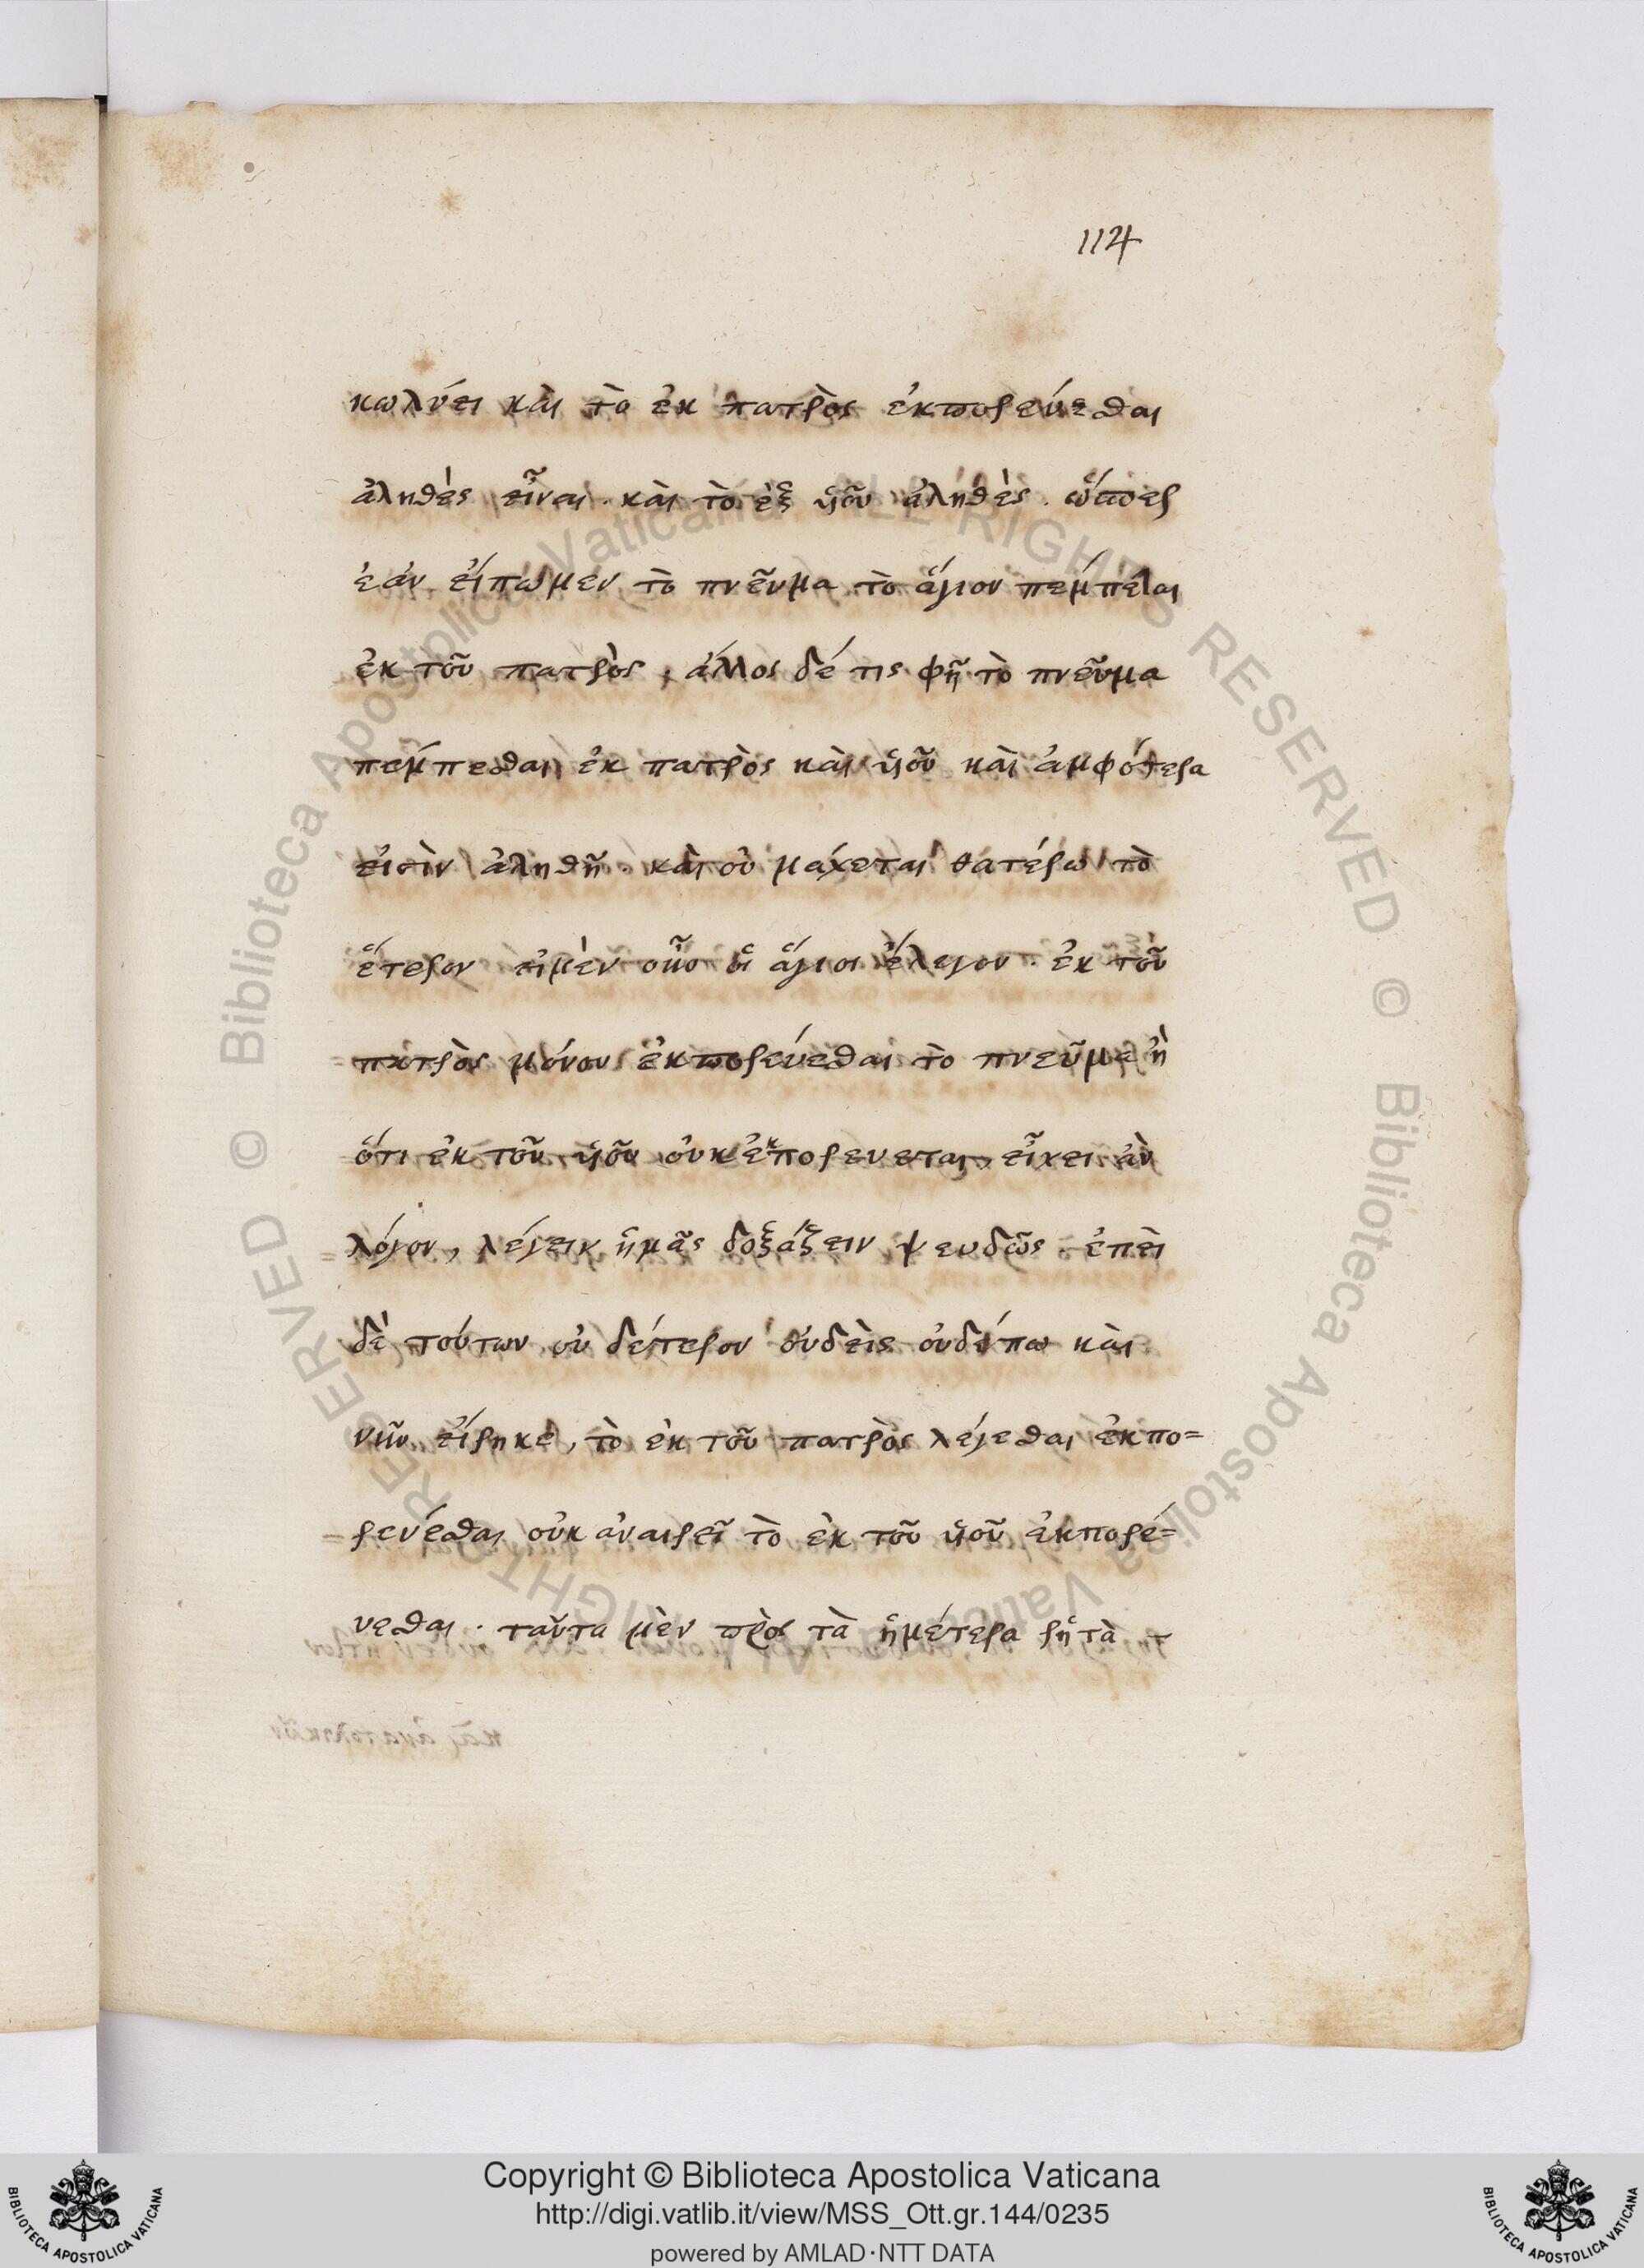 114
κωλύει καὶ τὸ ἐκ πατρὸς ἐκπορεύεσθαι
ἀληθὲς εἶναι. καὶ τὸ ἐξ ὑιοῦ ἀληθὲς. ὥσπερ
ἐὰν εἴπωμεν τὸ πνεῦμα τὸ ἅγιον πέμπεται
ἐκ τοῦ πατρὸς, ἄλλος δέ τις φῆ τὸ πνεῦμα
πέμπεσθαι ἐκ πατρὸς καὶ ὑιοῦ καὶ ἀμφότερα
εἰσὶν ἀληθῆ. καὶ οὐ μάχεται θατέρω τὸ
ἕτερον εἰ μὲν οὖν οἱ ἅγιοι ἔλεγον. ἐκ τοῦ
πατρὸς μόνου ἐκπορεύεσθαι τὸ πνεῦμα ἢ
ὅτι ἐκ τοῦ ὑιοῦ οὐκ ἐκπορευεται, εἶχει ἂν
λόγον, λέγειν ἡμᾶς δοξάζειν ψευδῶς. ἐπεὶ
δὲ τούτων οὐ δέτερον οὐδεὶς οὐδέπω καὶ
νῦν εἴρηκε, τὸ ἐκ τοῦ πατρὸς λέγεσθαι ἐκπο=
ρεύεσθαι οὐκ ἀναιρεῖ τὸ ἐκ τοῦ ὑιοῦ ἐκπορέ=
υεσθαι. ταῦτα μὲν πρὸς τὰ ἡμέτερα ῥητὰ
Copyright © Biblioteca Apostolica Vaticana
http://digi.vatlib.it/view/MSS_Ott.gr.144/0235
powered by AMLAD·NTT DATA
BIBLIOTECA APOSTOLICA VATICANA
BIBLIOTECA APOSTOLICA VATICANA